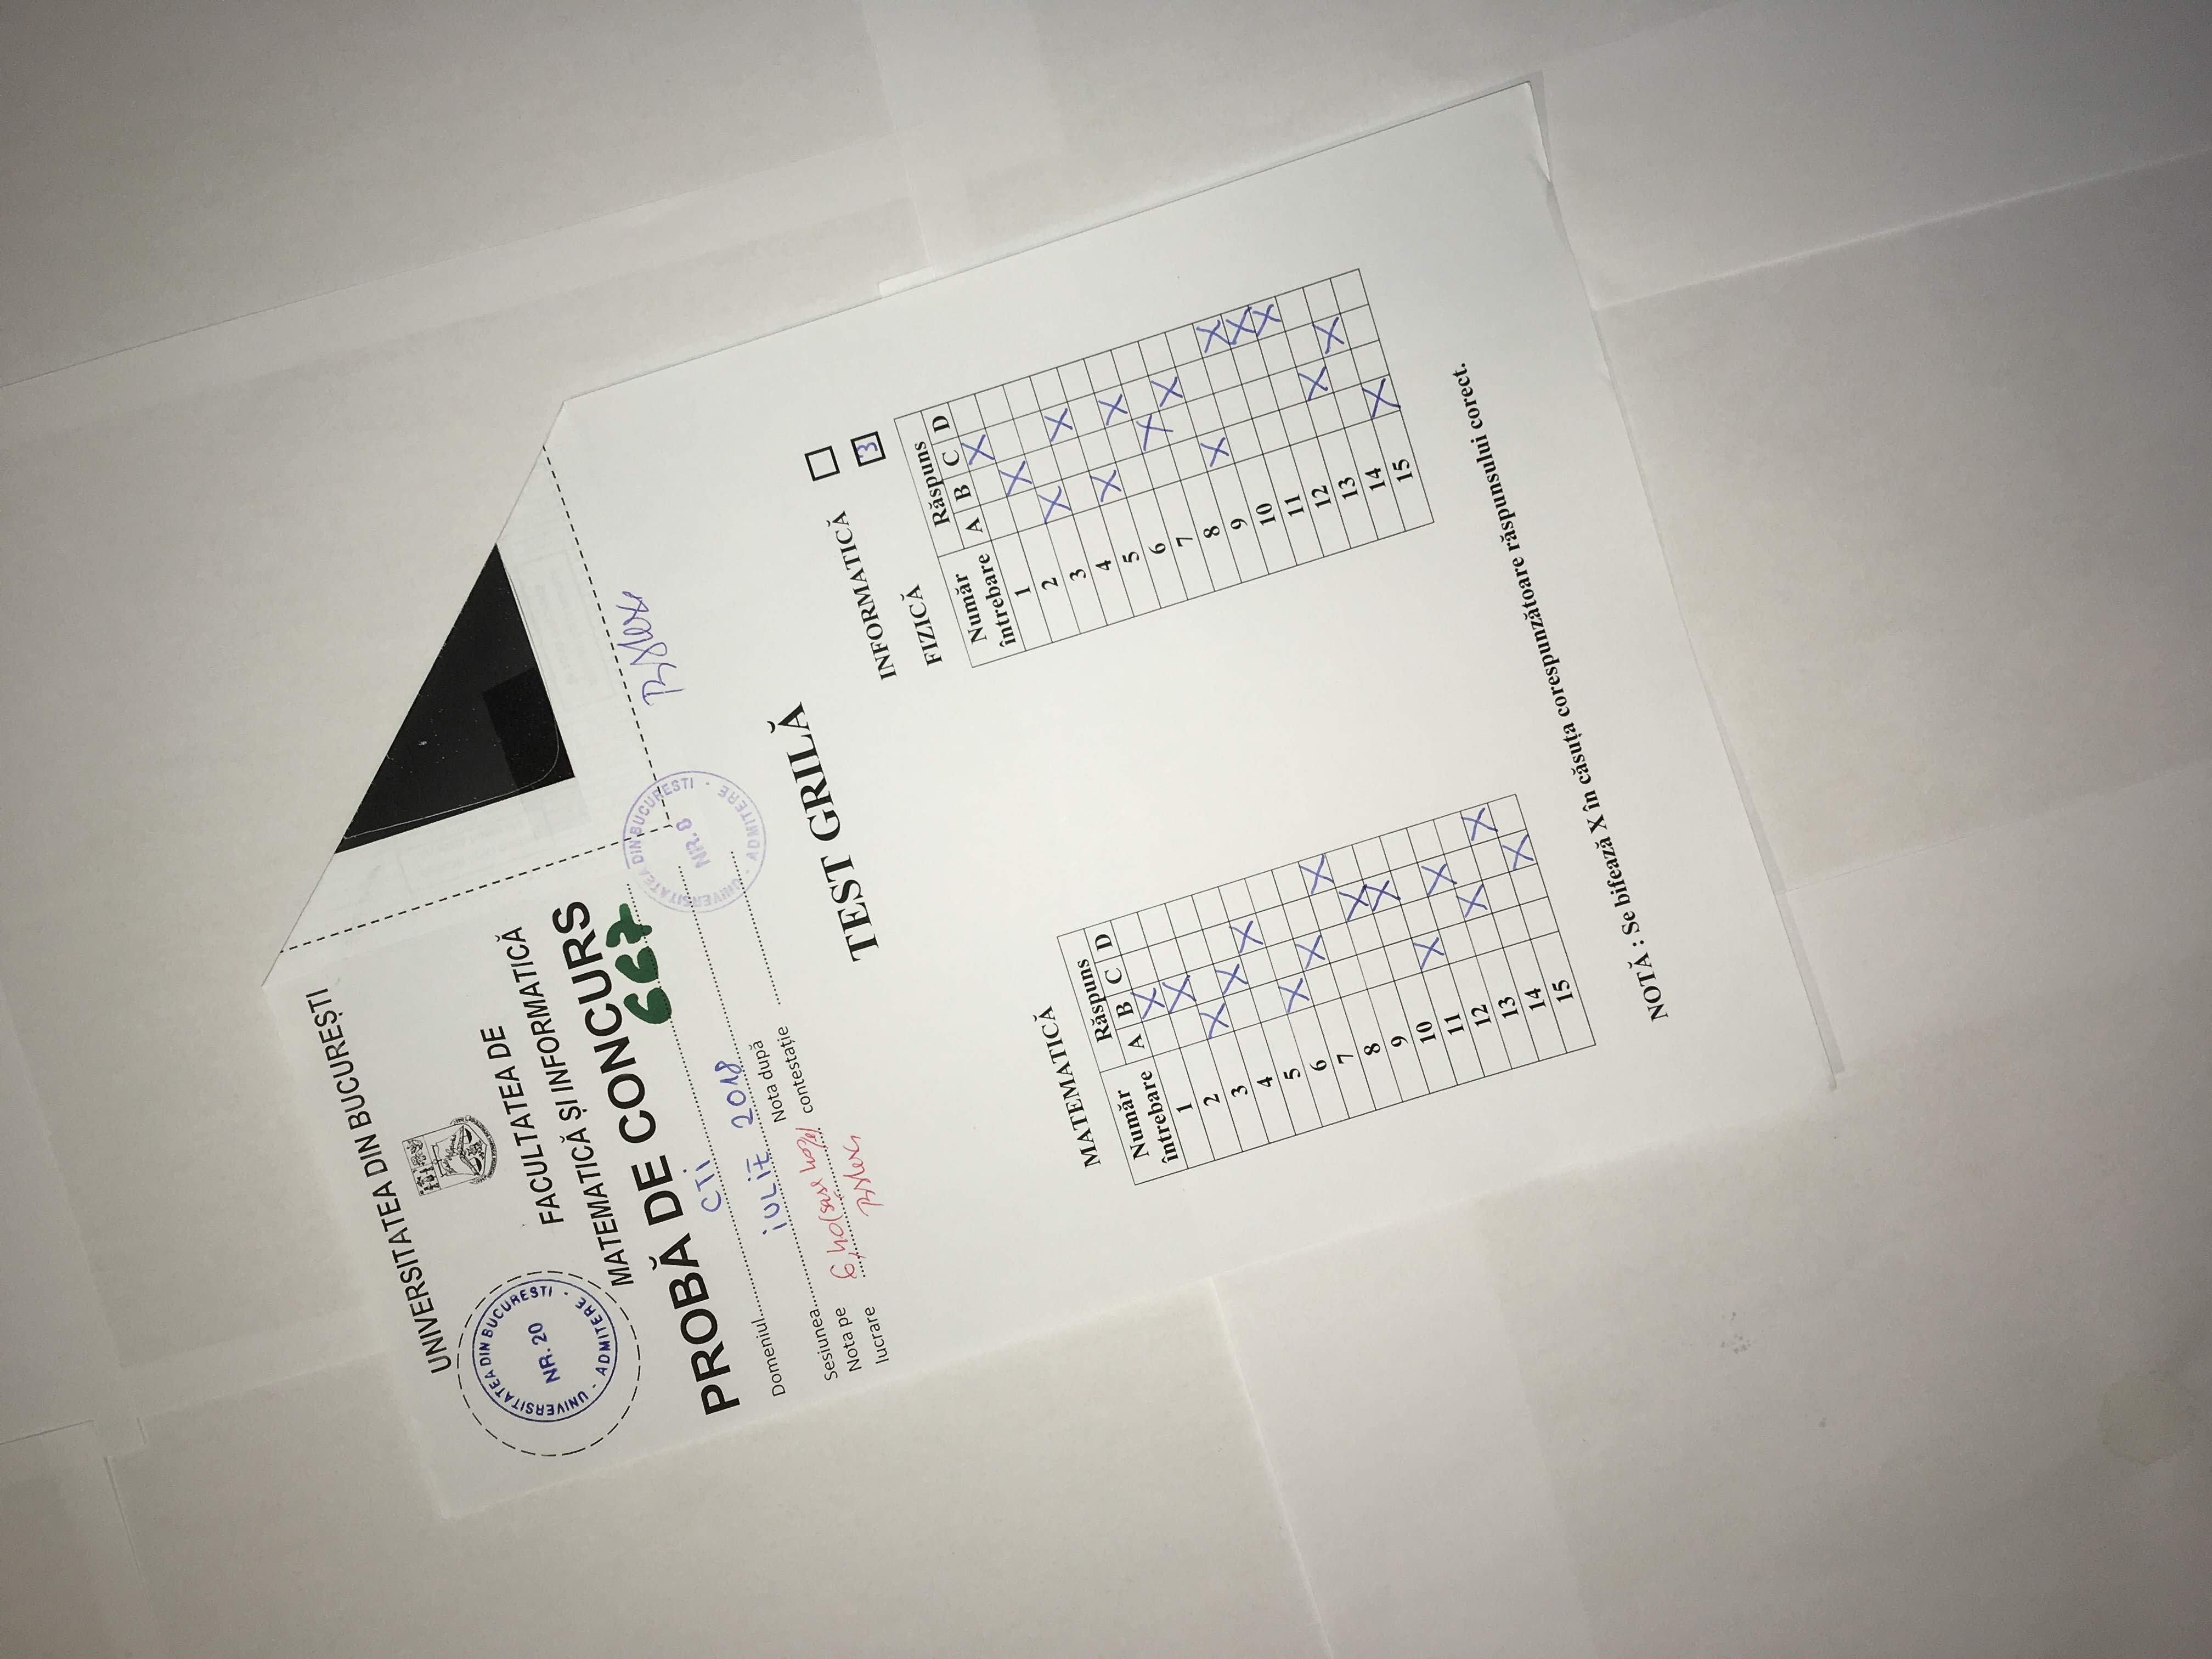 UNIVERSITATEA DIN BUCUREȘTI
UNIVERSITATEA DIN BUCURESTI - ADMITERE -
NR. 20
FACULTATEA DE
MATEMATICĂ ȘI INFORMATICĂ
PROBĂ DE CONCURS
667
Domeniul CTi
Sesiunea iULiE 2018
Nota pe lucrare 6,40 (șase 40%)
Nota după contestație
UNIVERSITATEA DIN BUCURESTI - ADMITERE -
NR. 8
TEST GRILĂ
INFORMATICĂ
FIZICĂ 3
Număr întrebare Răspuns
A B C D
1 X
2 X
3 X
4 X
5 X
6 X
7 X
8 X
9 X
10 X
11 X
12 X
13 X
14 X
15 X
MATEMATICĂ
Număr întrebare Răspuns
A B C D
1 X
2 X
3 X
4 X
5 X
6 X
7 X
8 X
9 X
10 X
11 X
12 X
13 X
14 X
15 X
NOTĂ : Se bifează X în căsuța corespunzătoare răspunsului corect.